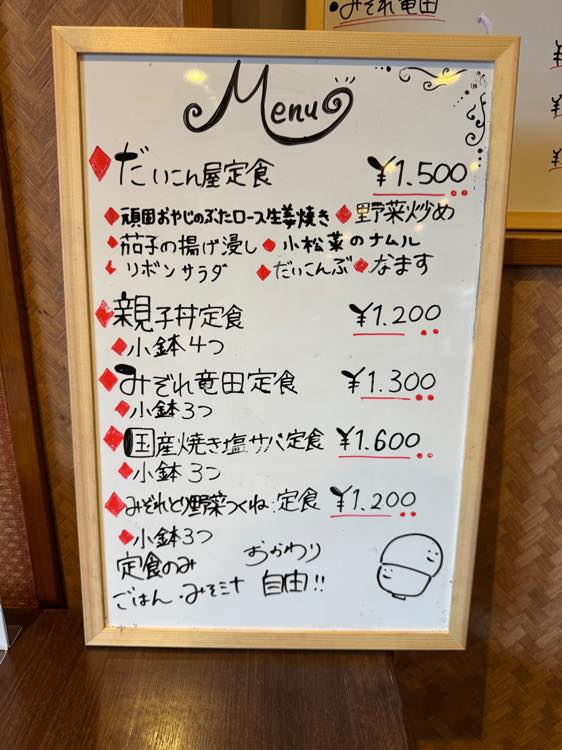 •みぞれ竜田
¥
¥
¥
Menu
だいこん屋定食 ¥1.500
頑固おやじのぶたロース生姜焼き 野菜炒め
茄子の揚げ浸し 小松菜のナムル
リボンサラダ だいこんぶ なます
親子丼定食 ¥1.200
小鉢4つ
みぞれ竜田定食 ¥1.300
小鉢3つ
国産焼き塩サバ定食 ¥1.600
小鉢3つ
みぞれとり野菜つくね定食 ¥1.200
小鉢3つ
定食のみ おかわり
ごはん・みそ汁 自由!!